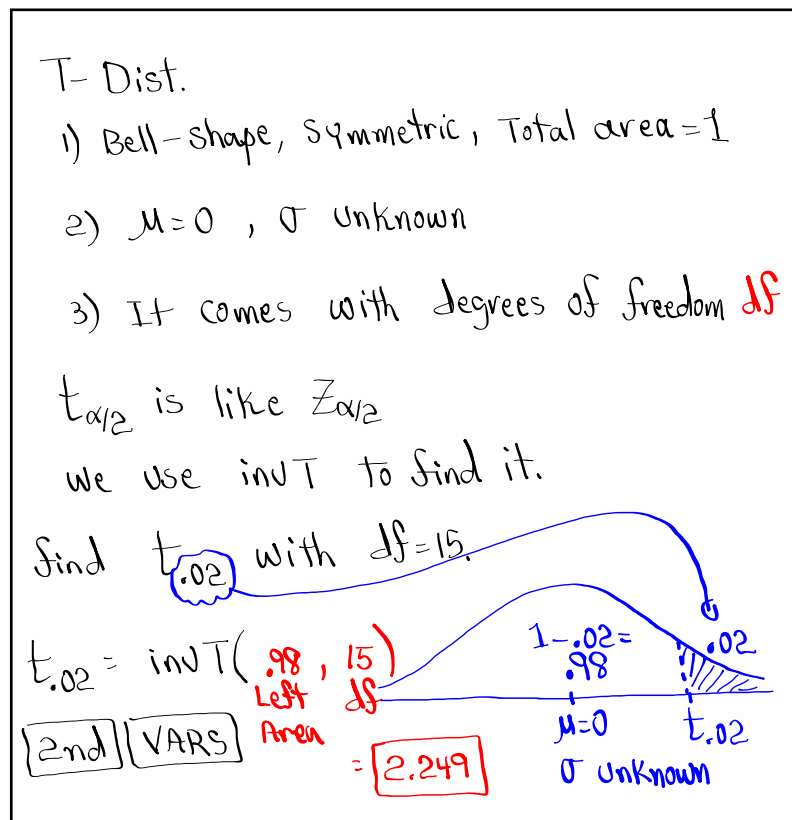 T- Dist.
1) Bell-shape, Symmetric, Total area=1
2) μ=0 , σ unknown
3) It comes with degrees of freedom df
tα/2 is like Zα/2
we use invT to find it.
find t.02 with df=15.
t.02 = invT( .98 , 15 )
Left df
Area
2nd VARS
= 2.249
1-.02=
.98
.02
μ=0
t.02
σ unknown